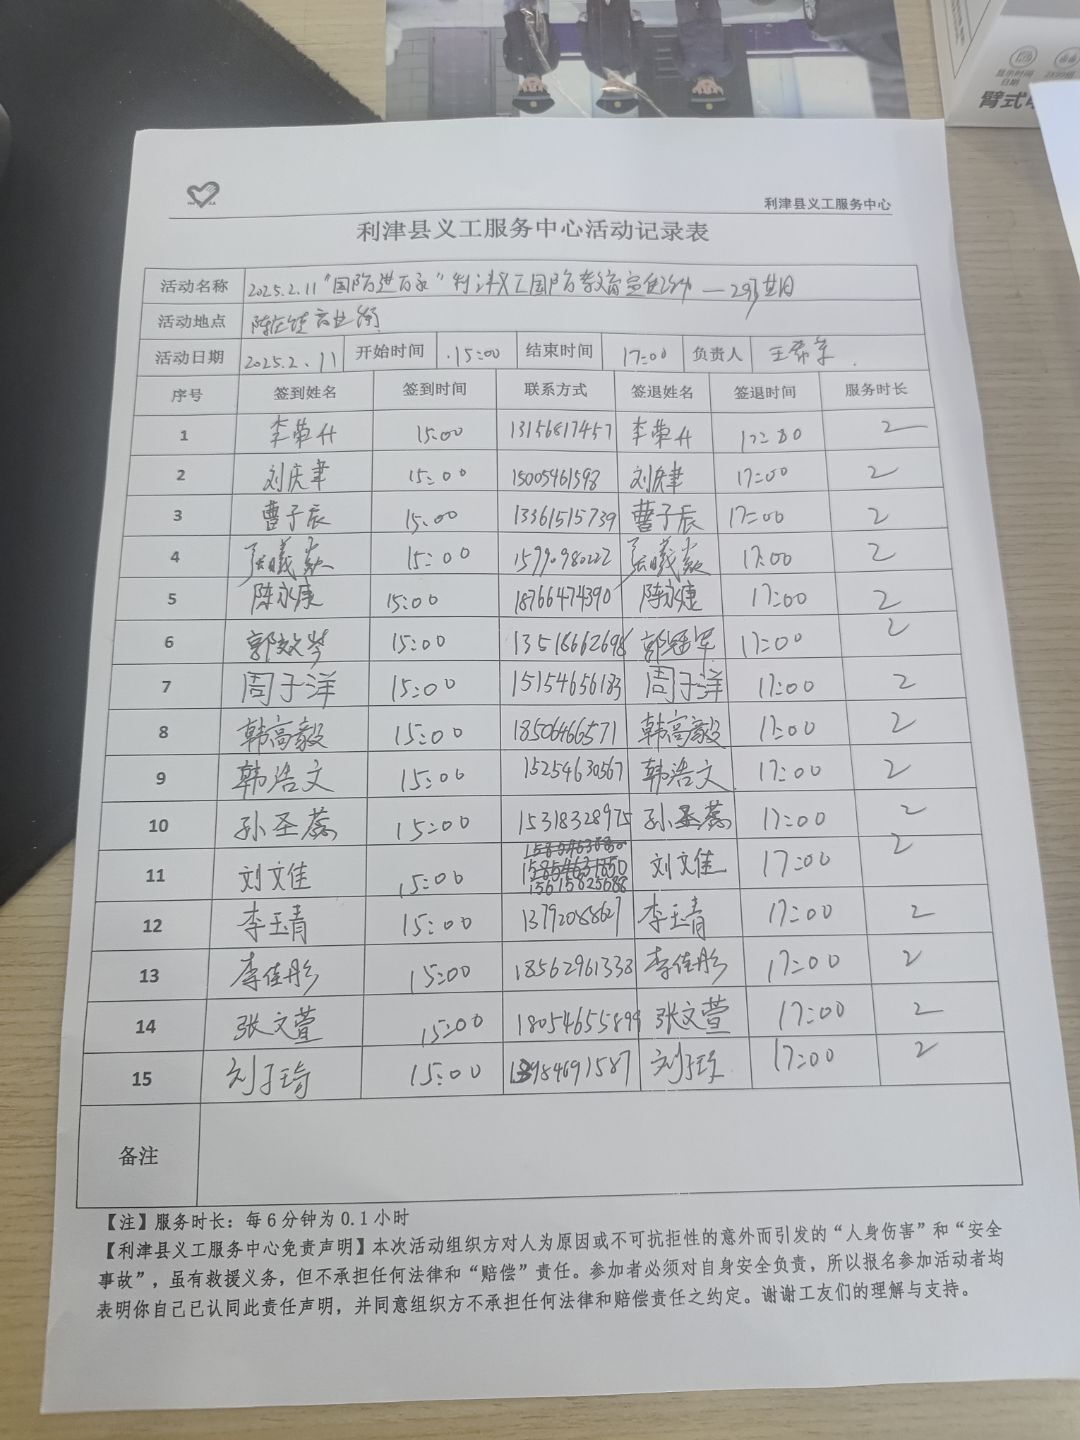 显示时间
日期
臂式
利津县义工服务中心
利津县义工服务中心活动记录表
活动名称 2025.2.11“国防进百家”利津义工国防教育宣传活动
活动地点 业街
活动日期 2025.2.11 开始时间 15:00 结束时间 17:00 负责人
序号 签到姓名 签到时间 联系方式 签退姓名 签退时间 服务时长
1 李荣升 15:00 13156817457 李荣升 17:00 2
2 刘庆聿 15:00 15005461598 刘庆聿 17:00 2
3 曹子辰 15:00 13361515739 曹子辰 17:00 2
4 张曦 15:00 张曦 17:00 2
5 陈永康 15:00 18766474390 陈永康 17:00 2
6 郭效岑 15:00 13518662698 郭冠军 17:00 2
7 周于洋 15:00 15154656183 周于洋 17:00 2
8 韩高毅 15:00 18506466571 韩高毅 17:00 2
9 韩浩文 15:00 15254630567 韩浩文 17:00 2
10 孙圣 15:00 15318328975 孙圣 17:00 2
11 刘文佳 15:00 15615825688 刘文佳 17:00 2
12 李玉青 15:00 13792088627 李玉青 17:00 2
13 李佳彤 15:00 18562961338 李佳彤 17:00 2
14 张文萱 15:00 18054655899 张文萱 17:00 2
15 刘子琦 15:00 刘子琦 17:00 2
备注
【注】服务时长：每6分钟为0.1小时
【利津县义工服务中心免责声明】本次活动组织方对人为原因或不可抗拒性的意外而引发的“人身伤害”和“安全
事故”，虽有救援义务，但不承担任何法律和“赔偿”责任。参加者必须对自身安全负责，所以报名参加活动者均
表明你自己已认同此责任声明，并同意组织方不承担任何法律和赔偿责任之约定。谢谢工友们的理解与支持。